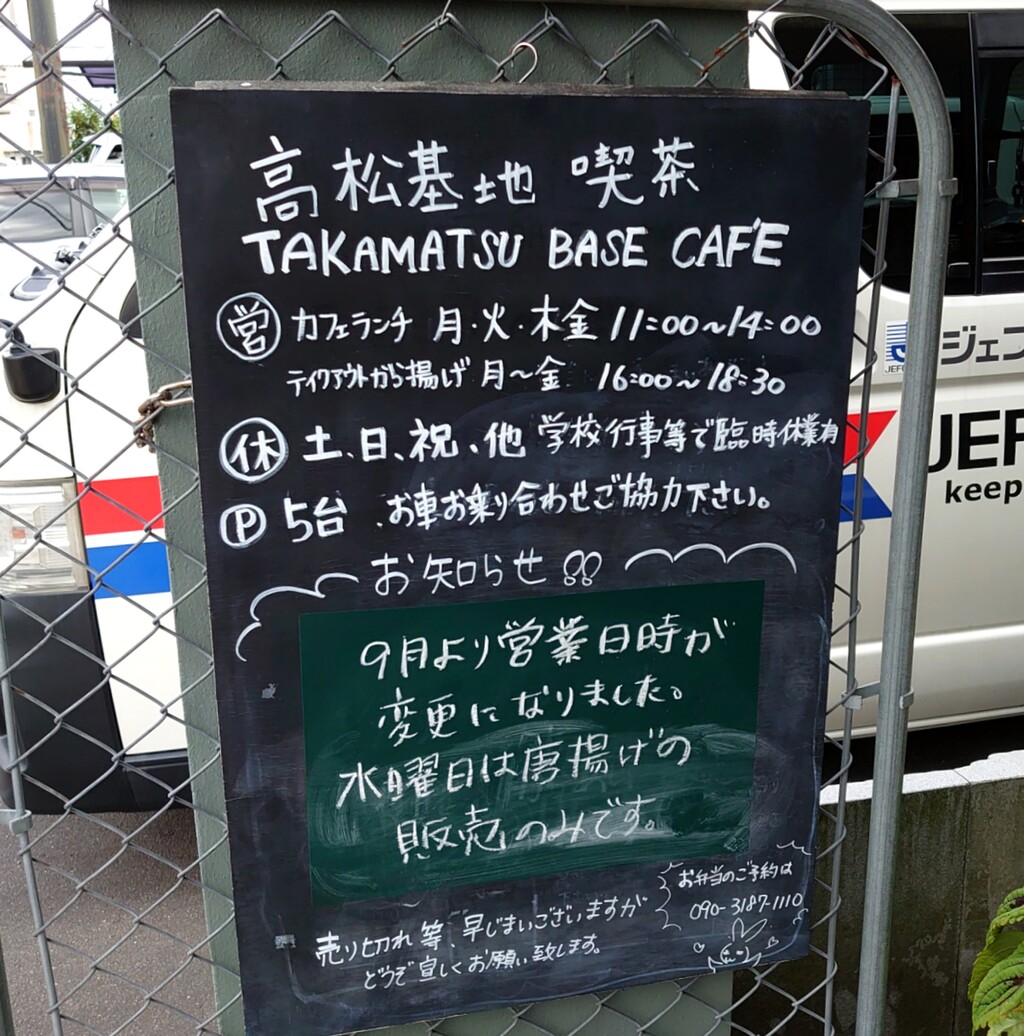 高松基地 喫茶
TAKAMATSU BASE CAFE
営 カフェランチ 月・火・木金 11:00〜14:00
テイクアウトから揚げ 月〜金 16:00〜18:30
休 土、日、祝、他 学校行事等で臨時休業有
P 5台 、お車お乗り合わせご協力下さい。
お知らせ!!
9月より営業日時が
変更になりました。
水曜日は唐揚げの
販売のみです。
売り切れ等、早じまいございますが
どうぞ宜しくお願い致します。
お弁当のご予約は
090-3187-1110
ジェフ
JEF
keep